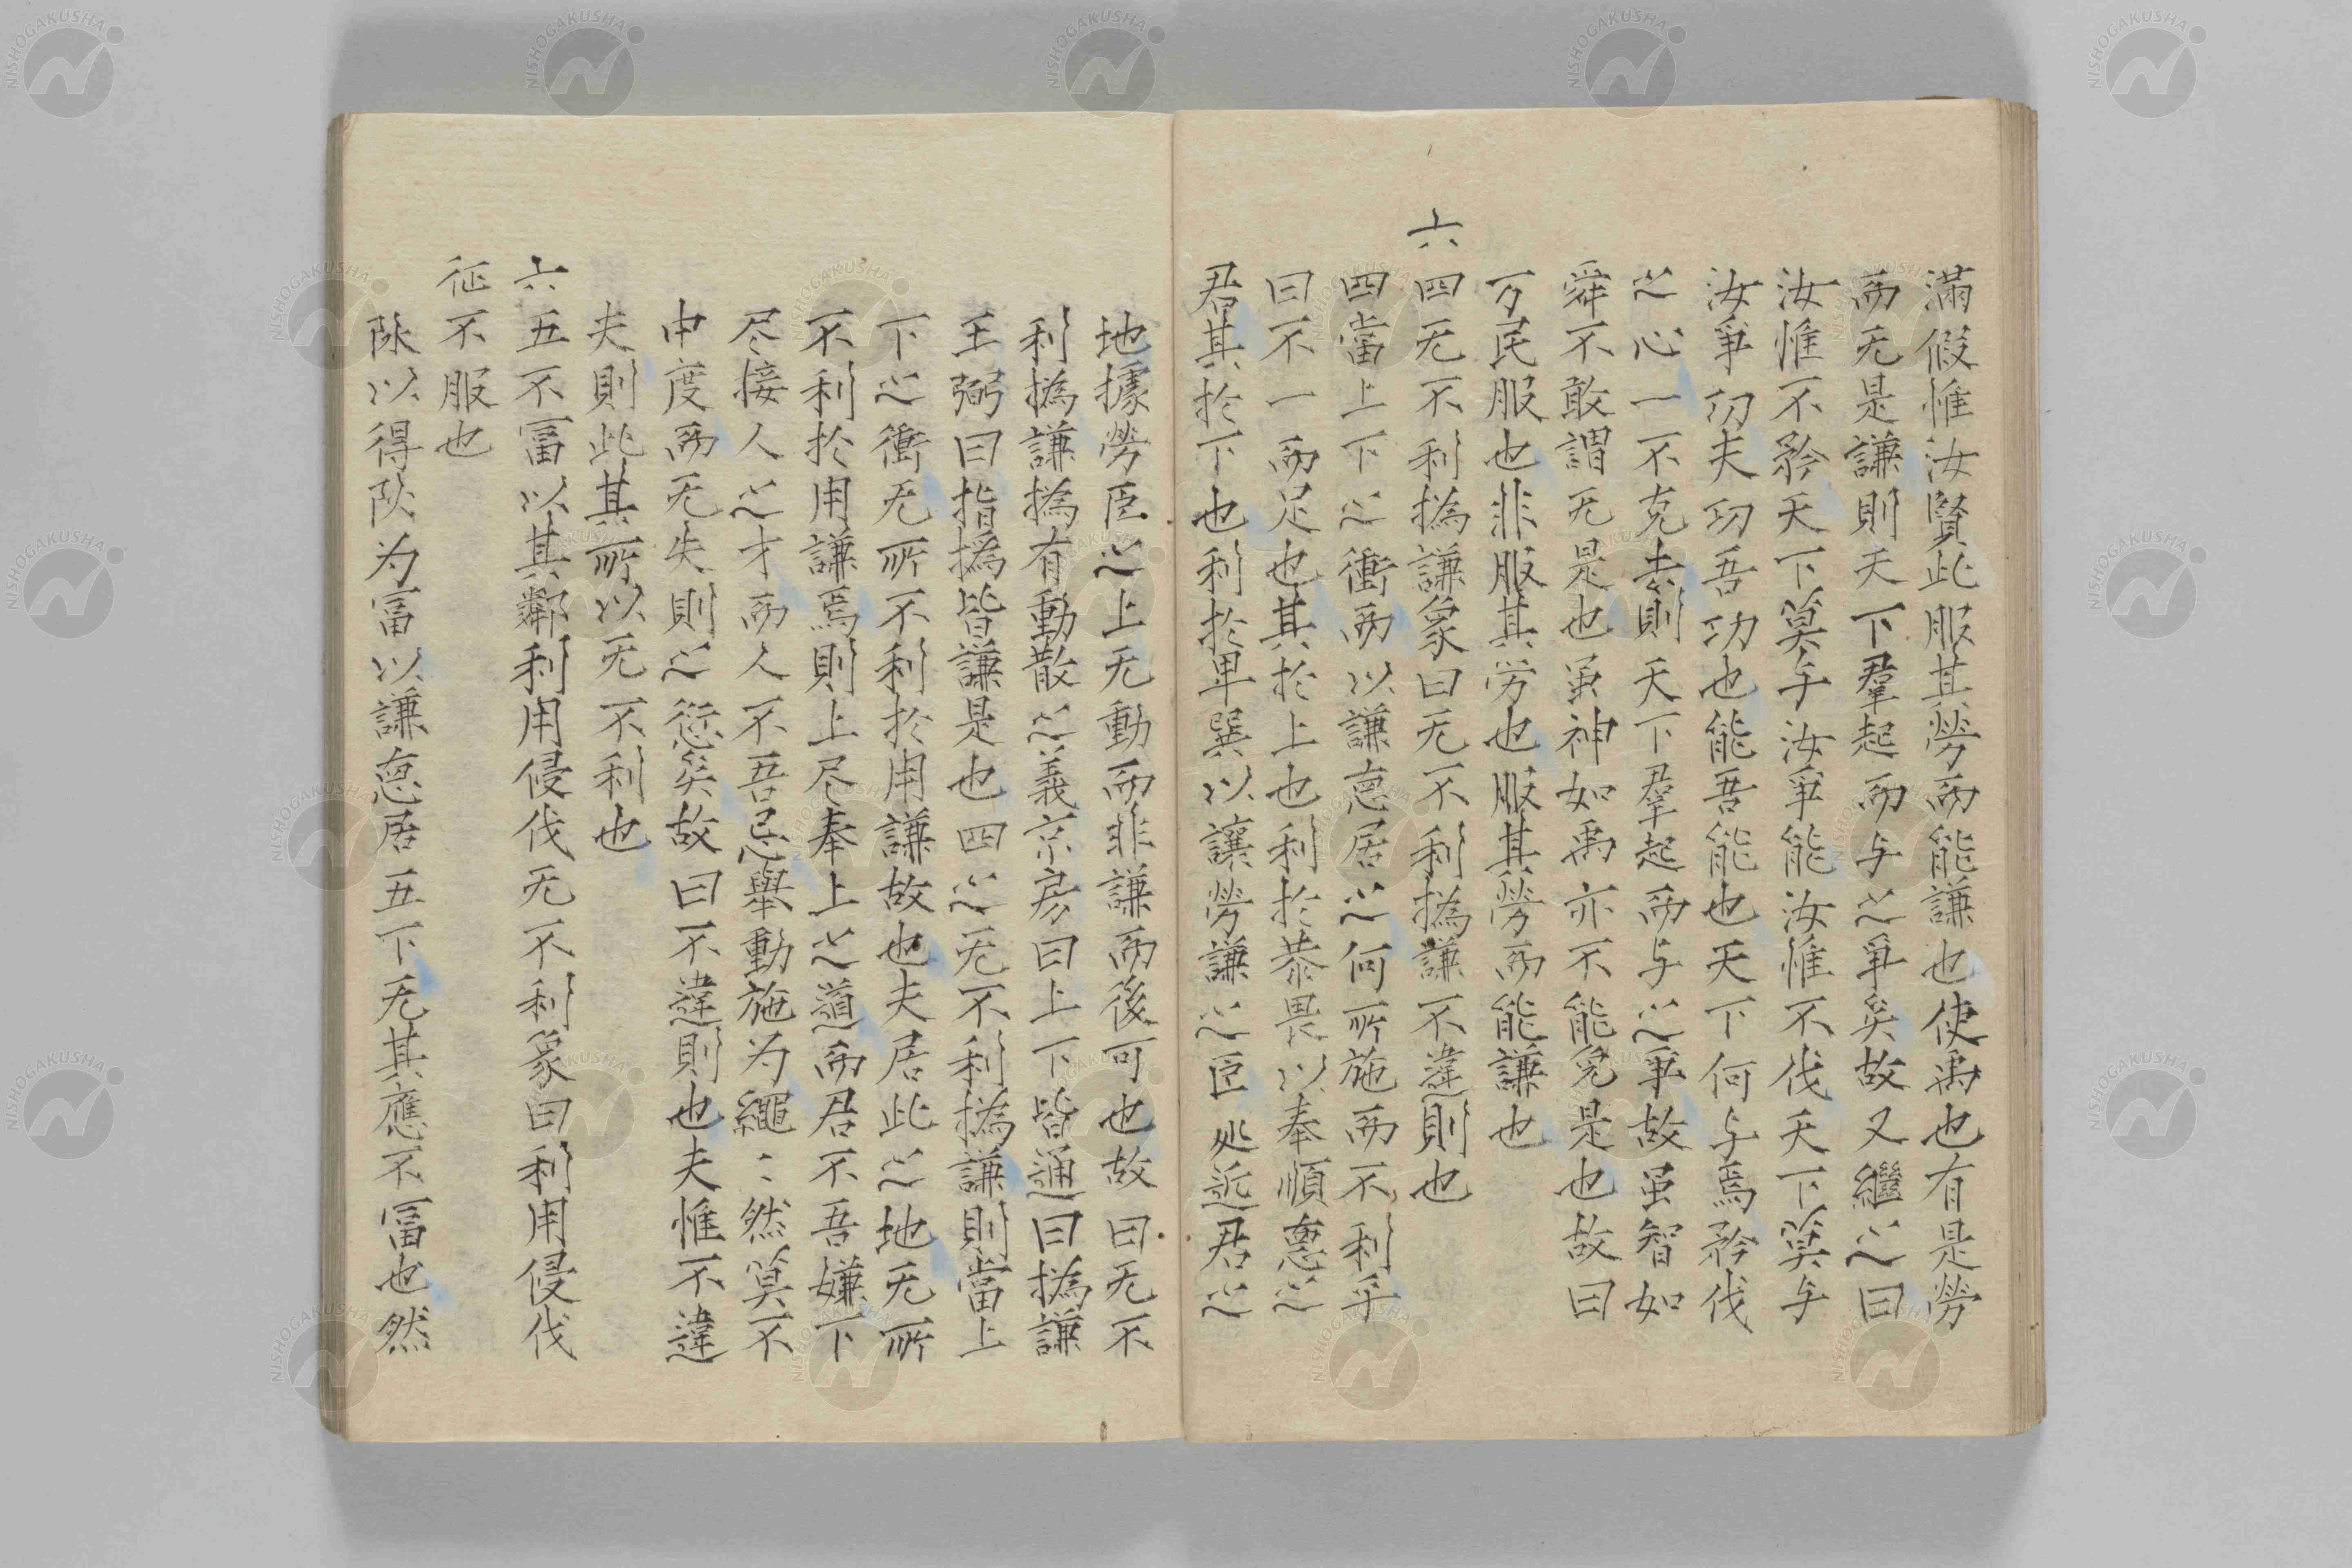 滿假惟汝賢此服其勞而能謙也使禹也有是勞
而无是謙則天下羣起而与之爭矣故又繼之曰
汝惟不矜天下莫与汝爭能汝惟不伐天下莫与
汝爭功夫功吾功也能吾能也天下何与焉矜伐
之心一不克去則天下羣起而与之爭故虽智如
舜不敢謂无是也虽神如禹亦不能免是也故曰
万民服也非服其労也服其勞而能謙也
六四无不利撝謙象曰无不利撝謙不違則也
四當上下之衝而以謙悳居之何所施而不利乎
曰不一而足也其於上也利於恭畏以奉順悳之
君其於下也利於卑巽以讓勞謙之臣処近君之
地據勞臣之上无動而非謙而後可也故曰无不
利撝謙撝有動散之義京房曰上下皆通曰撝謙
王弼曰指撝皆謙是也四之无不利撝謙則當上
下之衝无所不利於用謙故也夫居此之地无所
不利於用謙焉則上尽奉上之道而君不吾嫌下
尽接人之才而人不吾忌舉動施为繩〻然莫不
中度而无失則之愆矣故曰不違則也夫惟不違
夫則此其所以无不利也
六五不冨以其鄰利用侵伐无不利象曰利用侵伐
征不服也
陎以得陎为冨以謙悳居五下无其應不冨也然
NISHOGAKUSHA